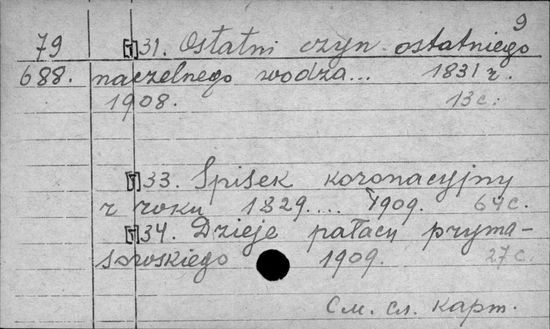 9
79 [T]31. Ostatni czyn ostatniego
688. naczelnego wodza... 1831 r.
1908. 13 c.
[T]33. Spisek koronacyjny
z roku 1829.... 1909. 67 c.
[T]34. Dzieje pałacu pryma-
sowskiego 1909. 27 c.
См. сл. карт.